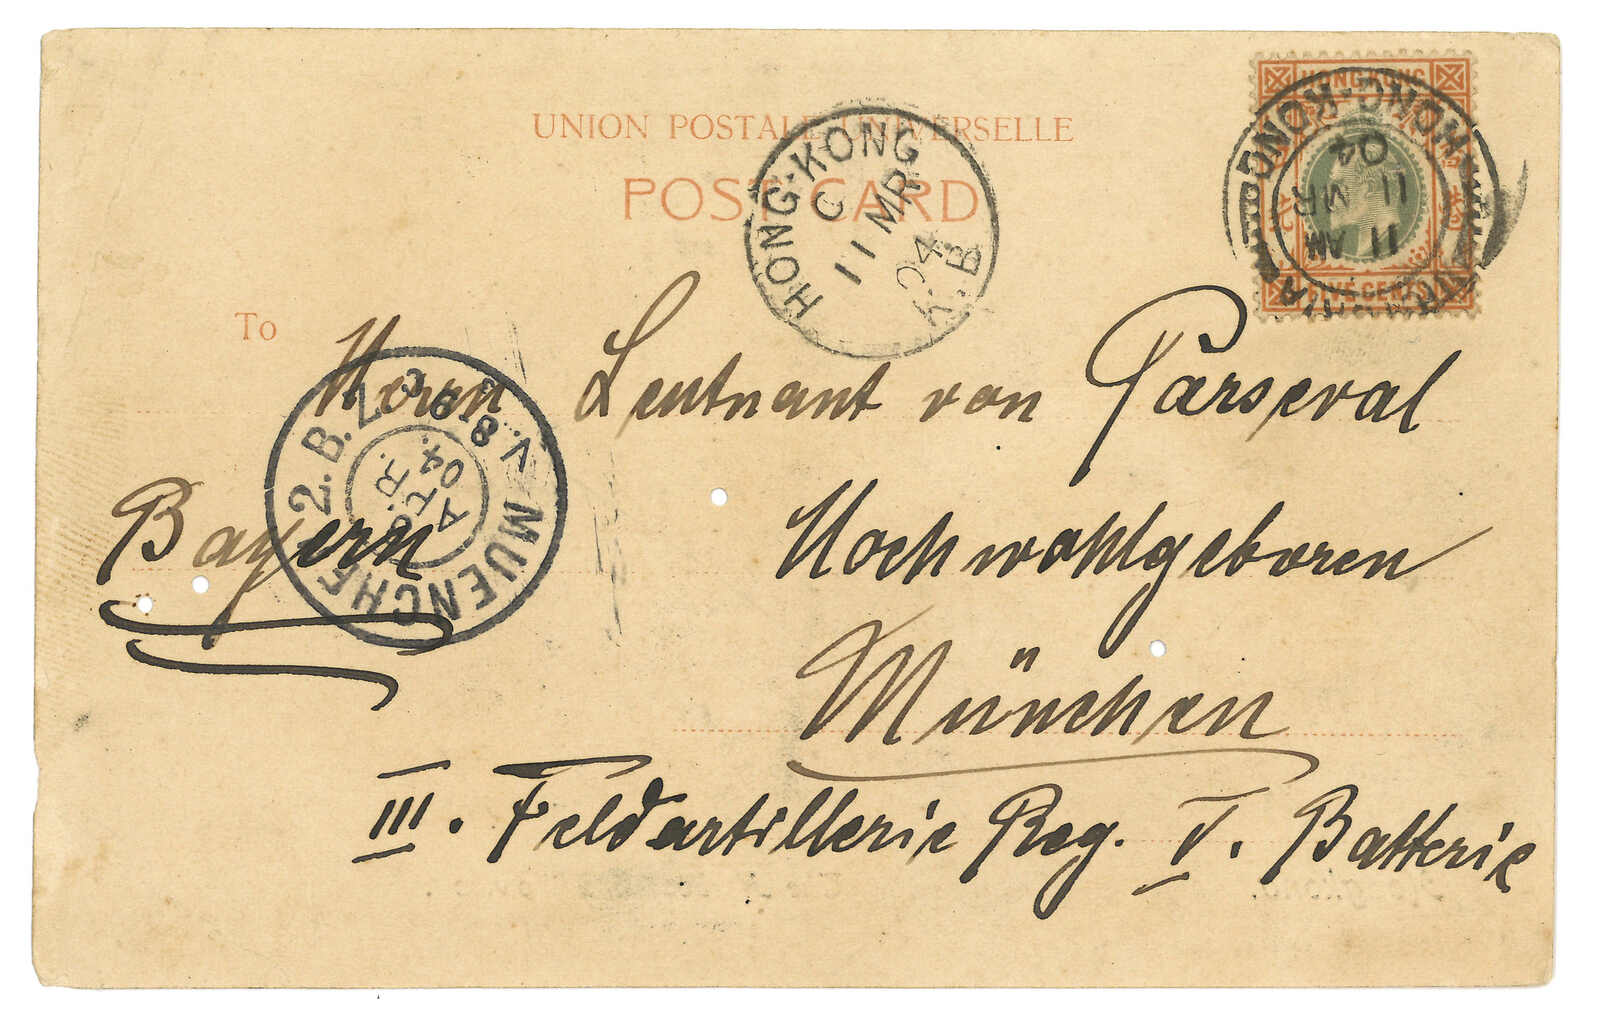 HONG KONG
FIVE CENTS
UNION POSTALE UNIVERSELLE
POST CARD
HONG-KONG
C
11 MR
04
K.B
HONG-KONG
11 AM
11 MR
04
VICTORIA
To
Herrn Leutnant von Parseval
Bayern
Hochwohlgeboren
München
III. Feldartillerie Reg. V. Batterie
MUENCHEN 2.B.Z.
APR.
04.
V. 8-9